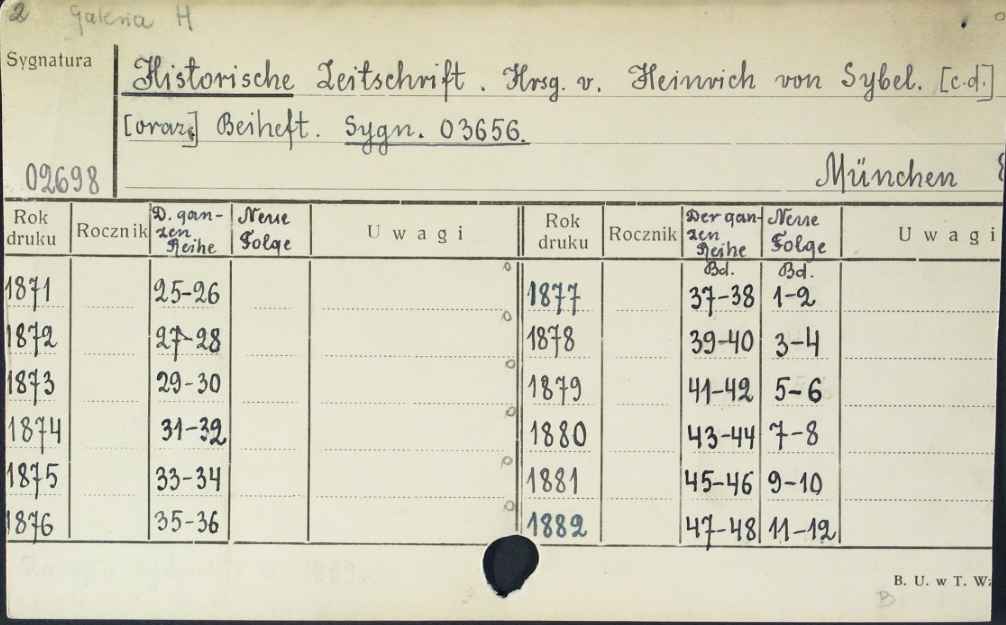 2 Galeria H
Sygnatura
Historische Zeitschrift. Hrsg. v. Heinrich von Sybel. [c.d.]
[oraz] Beiheft. Sygn. 03656.
02698
München
Rok druku Rocznik D. gan-zen Reihe Neue Folge Uwagi Rok druku Rocznik Der gan-zen Reihe Neue Folge Uwagi
Bd. Bd.
1871 25-26 1877 37-38 1-2
1872 27-28 1878 39-40 3-4
1873 29-30 1879 41-42 5-6
1874 31-32 1880 43-44 7-8
1875 33-34 1881 45-46 9-10
1876 35-36 1882 47-48 11-12
B. U. w T. W
B